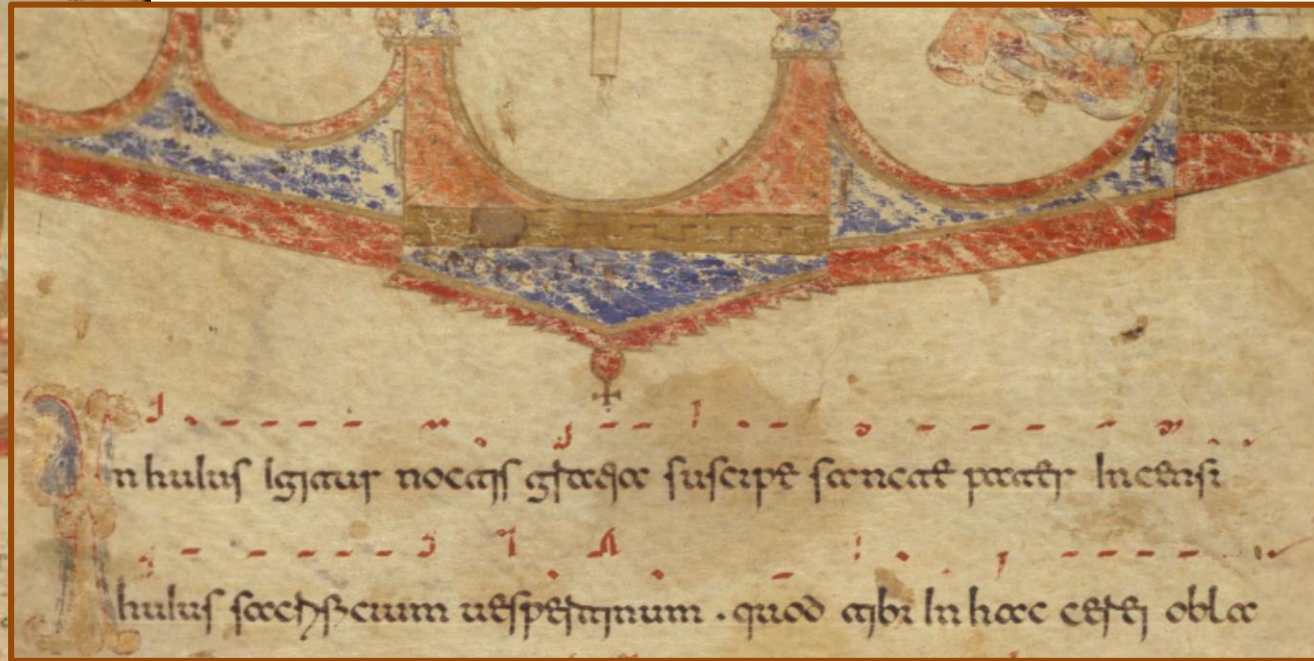 In huius Igitur noctis gratia suscipe sancte pater Incensi
huius sacrificium uespertinum . quod tibi In hac cerei obla